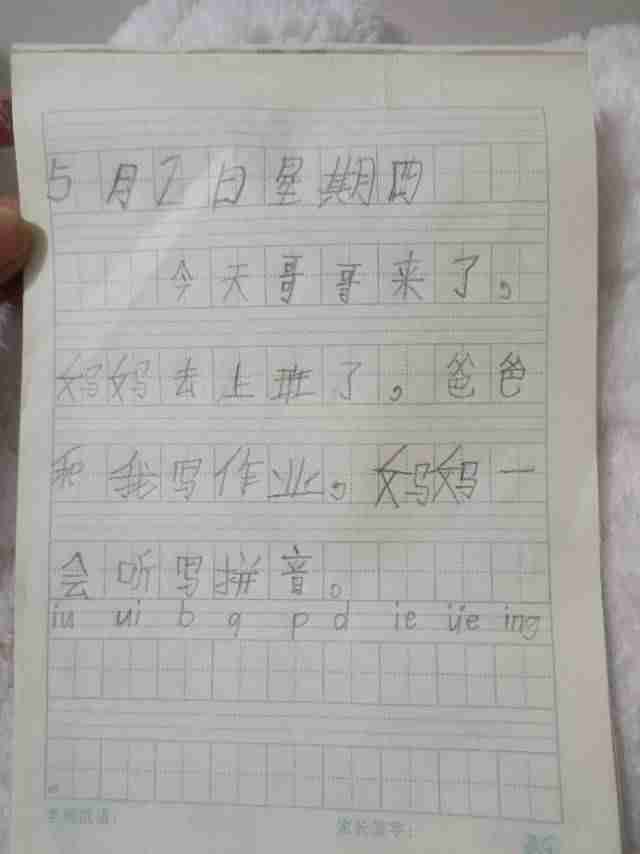 5月2日星期四
今天哥哥来了，
妈妈去上班了，爸爸
和我写作业，妈妈一
会听写拼音。
iu ui b q p d ie üe ing
家长签字：